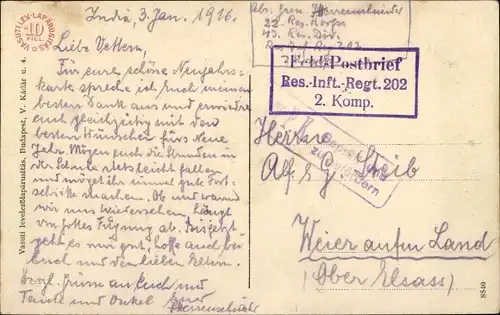 India, 3. Jan. 1916.
Liebe Vettern,
Für eure schöne Neujahrs-
karte spreche ich euch meinen
besten Dank aus und erwidere
euch gleichzeitig mit den
besten Wünschen fürs Neue
Jahr. Mögen euch die Stunden in
der Schule stets leicht fallen
und möget ihr immer gute Fort-
schritte machen. Ob und wann
wir uns wiedersehen, hängt
von Gottes Fügung ab. Bis jetzt
geht es mir gut, hoffe auch bei
euch und den lieben Eltern.
Grüsse an Euch und
Tante und Onkel Euer
VASUTI LEVLAPÁRUSITÁS
10
FILL.
Vasuti levelezőlapárusitás, Budapest, V. Kádár u. 4.
Abs.
22. Res. Korps
43. Res. Div.
Res. Inf. Reg. 202
Feld-Postbrief
Res.-Inft.-Regt. 202
2. Komp.
Herrn
Alf. & G. Steib
Weier auf'm Land
(Ober Elsass)
8540